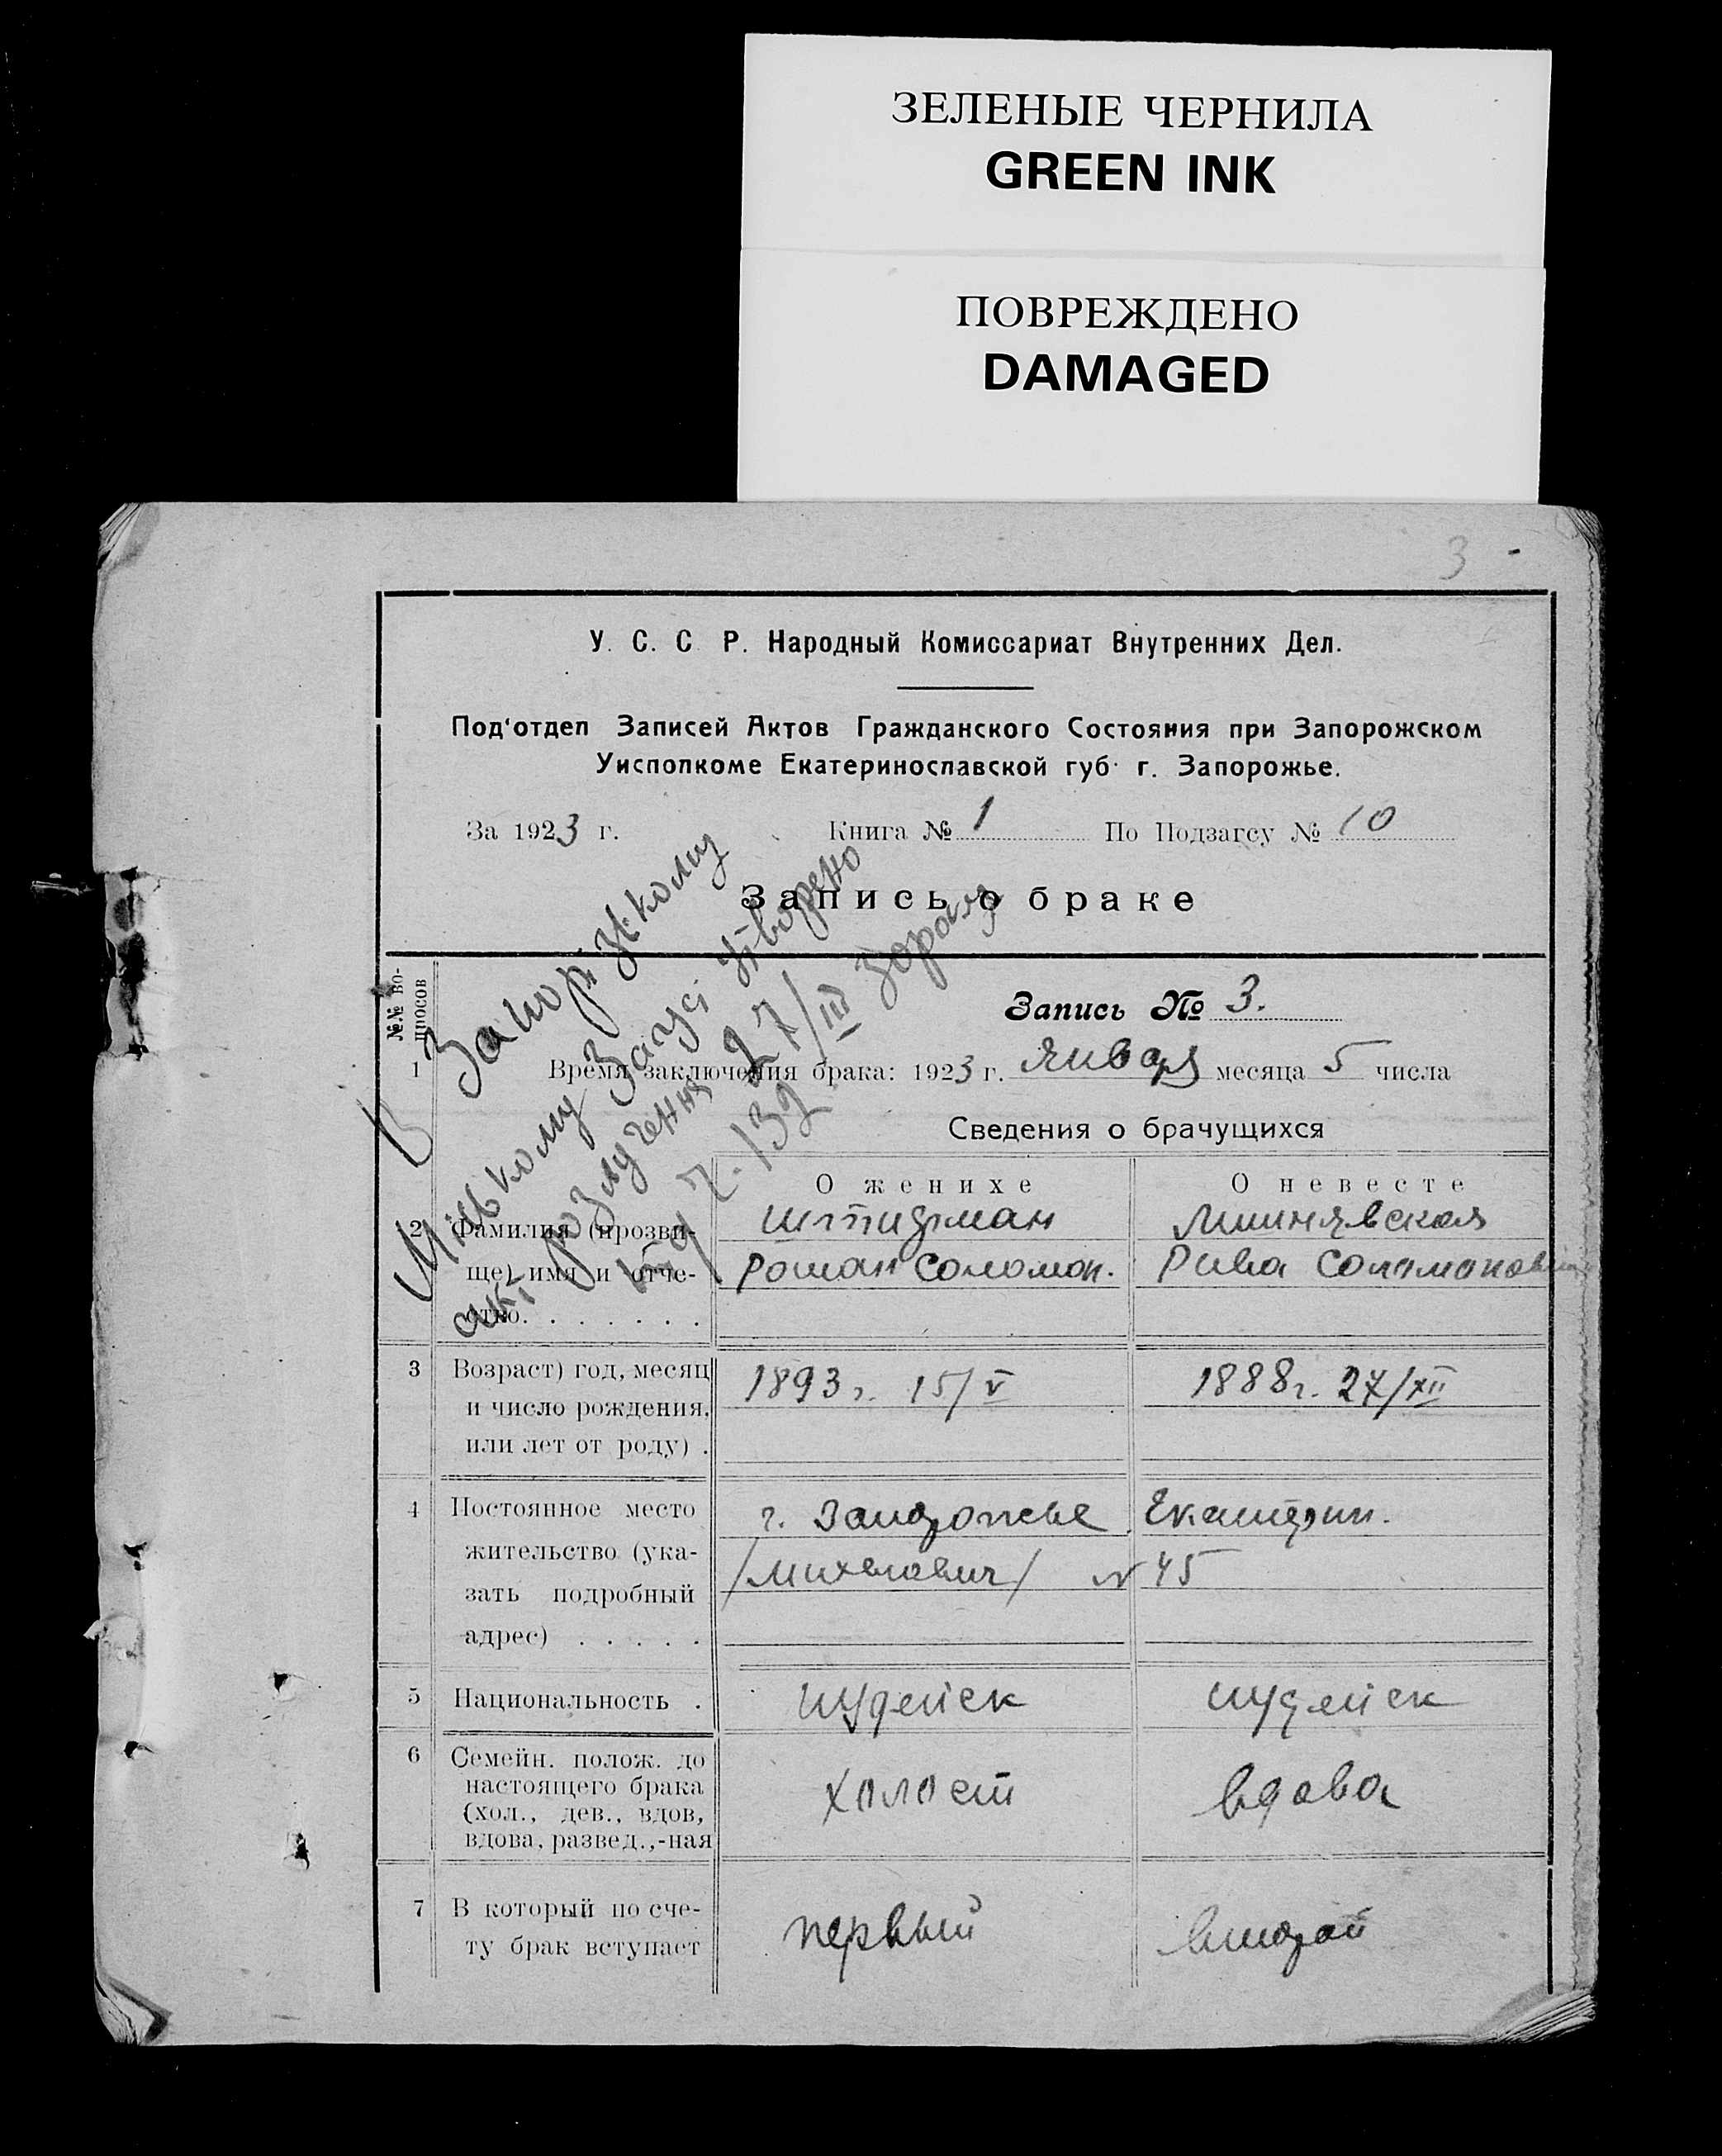 ЗЕЛЕНЫЕ ЧЕРНИЛА
GREEN INK
ПОВРЕЖДЕНО
DAMAGED
3
У. С. С Р. Народный Комиссариат Внутренних Дел.
Под'отдел Записей Актов Гражданского Состояния при Запорожском
Уисполкоме Екатеринославской губ. г. Запорожье.
За 1923 г. Книга № 1 По Подзагсу № 10
Запись о браке
№№ во-
просов
Запись № 3.
1 Время заключения брака: 1923 г. Января месяца 5 числа
В Запорізькому
Міському Загсі утворено
акт розлучення 27/III
ч. 132
Сведения о брачущихся
О женихе О невесте
2 Фамилия (прозви- Штидман Мишнявская
ще) имя и отче- Роман Соломон. Рива Соломонов
ство. . . . . . .
3 Возраст) год, месяц 1893 г. 15/V 1888 г. 27/XII
и число рождения,
или лет от роду) .
4 Постоянное место г. Запорожье Екатерин.
жительство (ука- /Михелович/ № 45
зать подробный
адрес) . . . . .
5 Национальность . иудейск иудейск
6 Семейн. полож. до
настоящего брака холост вдова
(хол., дев., вдов,
вдова, развед.,-ная
7 В который по сче- первый второй
ту брак вступает